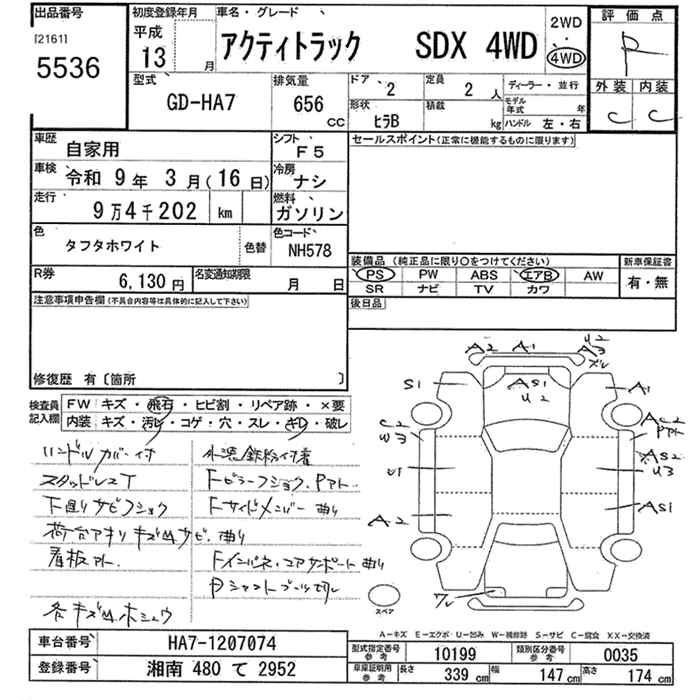 出品番号
[2161]
5536
初度登録年月
平成
13 月
車名・グレード
アクティトラック SDX 4WD
2WD
・
4WD
評価点
R
外装 内装
C C
型式
GD-HA7
排気量
656
CC
ドア 2
定員 2 人
ディーラー・並行
形状 ヒラB
積載 kg
モデル年式 年
ハンドル 左・右
車歴 自家用
シフト F5
車検 令和 9年 3月(16日)
冷房 ナシ
走行 9万4千202 km
燃料 ガソリン
色 タフタホワイト 色替
色コード NH578
R券 6,130円
名変通知期限 月 日
セールスポイント(正常に機能するものに限ります)
装備品(純正品に限り○をつけてください)
PS PW ABS エアB AW
SR ナビ TV カワ
新車保証書
有・無
後日品
注意事項申告欄(不具合内容等は具体的に記入して下さい)
修復歴 有〔箇所 〕
検査員記入欄
FW キズ・飛石・ヒビ割・リペア跡・×要
内装 キズ・汚レ・コゲ・穴・スレ・キレ・破レ
ハンドルカバー付
スタッドレスT
下廻りサビフショク
荷台アオリキズ凹サビ、曲り
看板アト
各キズ凹ホシュウ
外泥鉄粉付着
Fピラーフショク、Pアト
Fサイドメンバー曲り
Fインパネ、コアサポート曲り
Pシャフトブーツ切レ
A2 A1 A2
U2
U3
ズレ
S1
AS1
U2
A1
C2
W3
AC2
Pアト
AS2
U3
U1
A2
AS1
ワレ
スペア
A－キズ E－エクボ U－凹み W－補修跡 S－サビ C－腐食 XX－交換済
車台番号 HA7-1207074
登録番号 湘南 480 て 2952
型式指定番号 参考 10199
類別区分番号 参考 0035
車庫証明用 参考 長さ 339 cm 幅 147 cm 高さ 174 cm